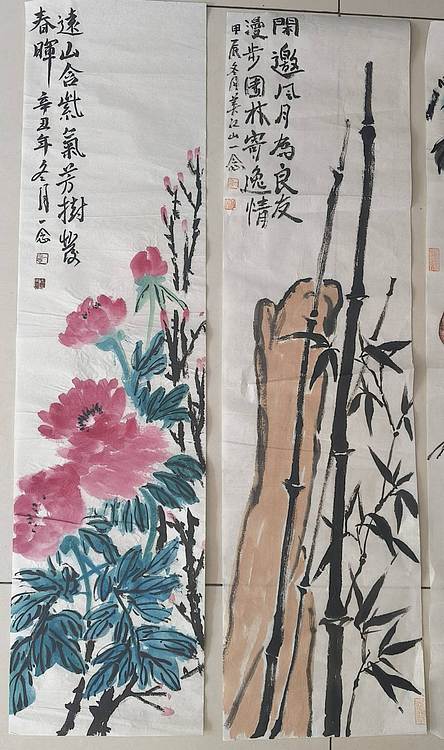 遠山含紫氣芳樹發
春暉 辛丑年冬月一念
閑邀风月為良友
漫步園林寄逸情
甲辰冬月江山一念